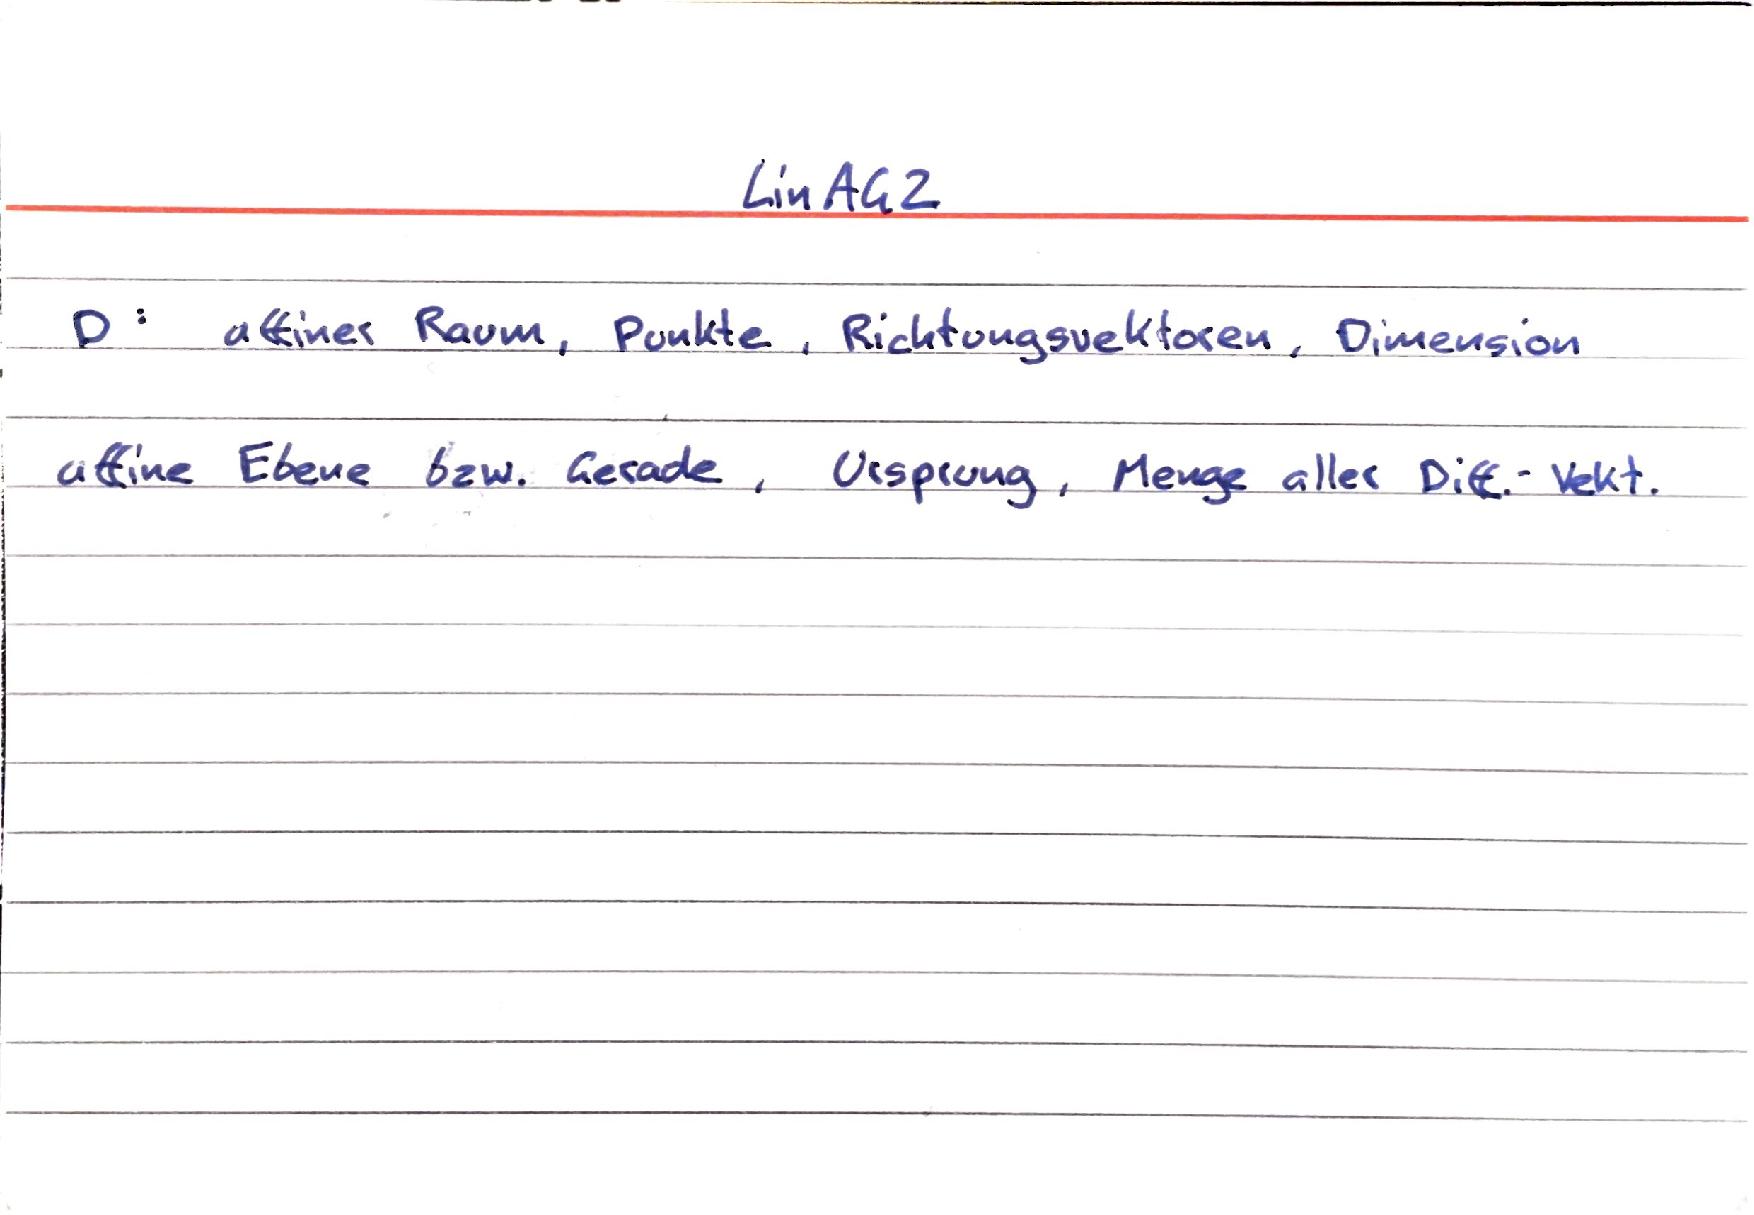 LinAG2
D: affiner Raum, Punkte, Richtungsvektoren, Dimension
affine Ebene bzw. Gerade, Ursprung, Menge aller Diff.-Vekt.